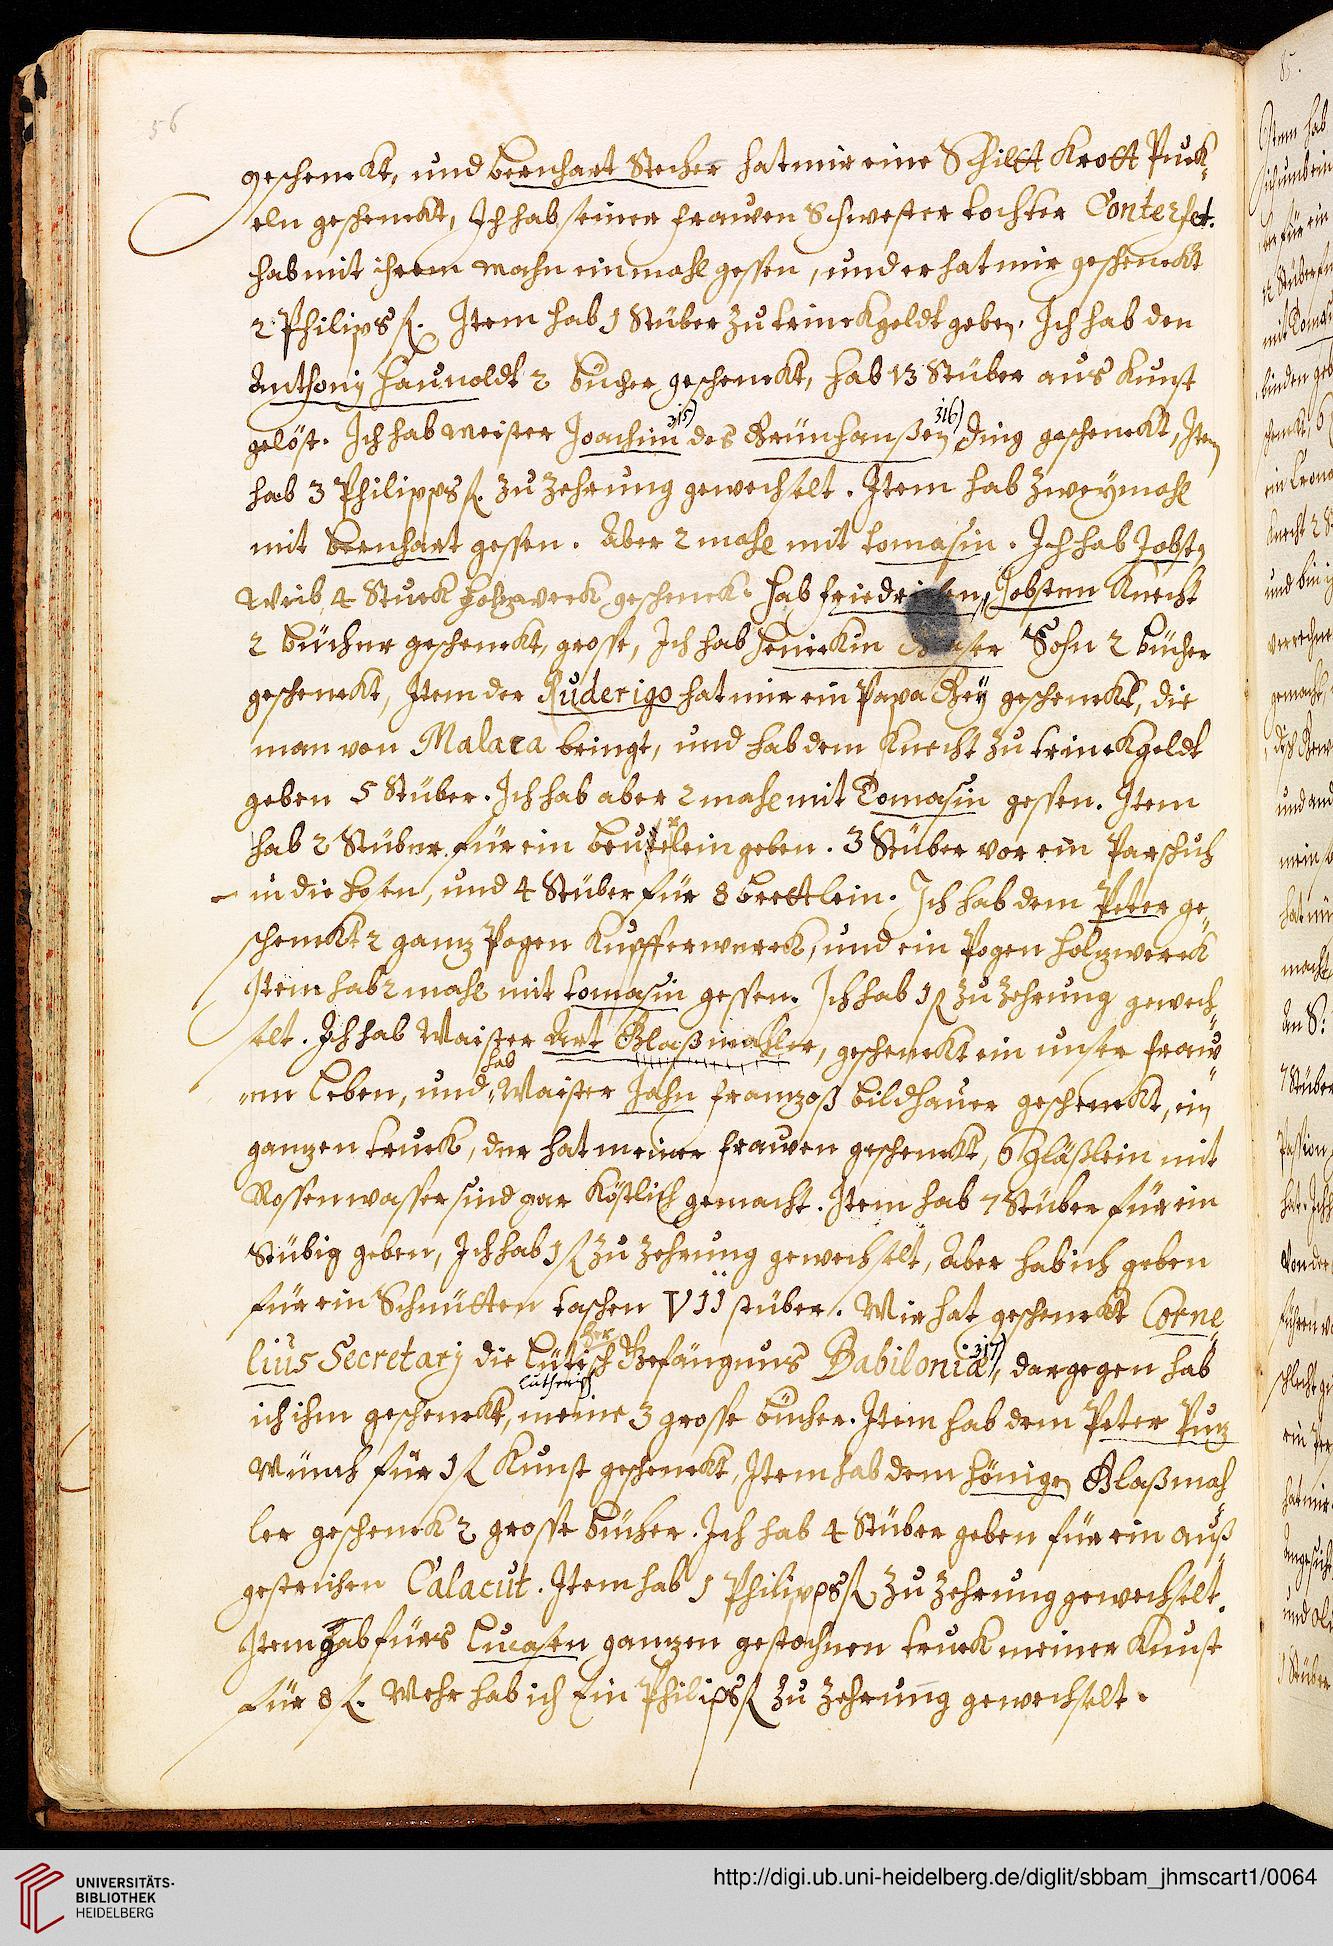 56
geschenckt, und Bernhart Stecher hat mir eine Schiltt Krott Puck-
eln geschenckt, Ich hab seiner frauen Schwester tochter Conterfet.
hab mit ihrem mahn einmahl gessen, und er hat mir geschenckt
2 Philips fl. Item hab 1 Stüber zu trinckgeldt geben. Ich hab den
Anthonj Haunoldt 2 bücher geschenckt, hab 13 Stüber aus Kunst
gelöst. Ich hab meister Joachim 315) des Grünhanßen 316) ding geschenckt, Item
hab 3 Philipps fl. zu zehrung gewechselt. Item hab zweymahl
mit Bernhart gessen. Aber 2 mahl mit tomasin. Ich hab Jobsts
Weib 4 Stuck holzwerck geschenckt hab friedrichen, Jobsten Knecht
2 bücher geschenckt, grosse, Ich hab henickin Sohn 2 bücher
geschenckt, Item der Ruderigo hat mir ein Papa Gey geschenckt, die
man von Malaca bringt, und hab dem Knecht zu trinckgeldt
geben 5 Stüber. Ich hab aber 2 mahl mit Tomasin gessen. Item
hab 2 Stüber für ein beutelein geben. 3 Stüber vor ein Parschuh
in die hosen, und 4 Stüber für 8 brettlein. Ich hab dem Peter ge-
schenckt 2 ganz Pogen Kupfferwerck, und ein Pogen holzwerck
Item hab 2 mahl mit tomasin gessen. Ich hab 1 fl zu zehrung gewech-
selt. Ich hab Maister Art Glaßmahler, geschenckt ein unser frau-
en leben, und hab Maister Jahn franzoß bildhauer geschenckt, ein
ganzen truck, der hat meiner frauen geschenckt, 6 gläßlein mit
Rossenwasser sind gar köstlich gemacht. Item hab 7 Stüber für ein
Stübig geben, Ich hab 1 fl zu zehrung gewechselt, Aber hab ich geben
für ein Schnütten taschen VII stüber. Mir hat geschenckt Corne-
lius Secretarj die Lütisch her lutherisch Gefängnus Babilonia 317), dargegen hab
ich ihm geschenckt, meine 3 grosse bücher. Item hab dem Peter Puz
Münch für 1 fl Kunst geschenckt, Item hab dem hönigen Glaßmah-
ler geschenck 2 grosse bücher. Ich hab 4 Stüber geben für ein auß-
gestrichen Calacut. Item hab 1 Philipps fl zu zehrung gewechselt.
Item hab fürs Lucasen ganzen gestochnen truck meiner Kunst
für 8 fl. Mehr hab ich Ein Philips fl zu zehrung gewechselt.
85.
UNIVERSITÄTS-
BIBLIOTHEK
HEIDELBERG
http://digi.ub.uni-heidelberg.de/diglit/sbbam_jhmscart1/0064